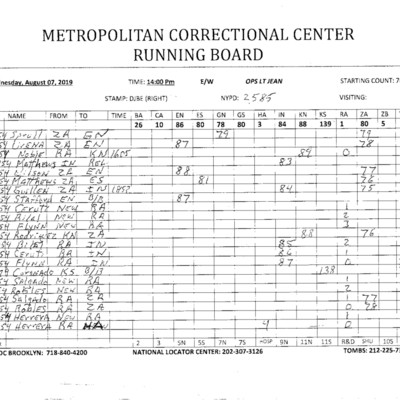 METROPOLITAN CORRECTIONAL CENTER
RUNNING BOARD
dnesday, August 07, 2019 TIME: 14:00 Pm E/W OPS LT JEAN STARTING COUNT: 7
STAMP: DJBE (RIGHT) NYPD: 2585 VISITING:
NAME FROM TO TIME BA CA EN ES GN GS HA IN KN KS R&D RA ZA ZB
26 10 86 80 78 80 3 84 88 139 1 0 78 5
ZA GN 79 79
54 ZA EN 87 78
54 Noble RA KN 1605 89 0
54 Matthews IN REL 83
54 Wilson ZA EN 88 77
54 Matthews ZA ES 81 76
54 Guillen ZA IN 1852 84 75
54 Stafford EN O/B 87
54 Ceruti NEW RA 1
54 NEW RA 2
54 Flynn NEW RA 3
54 Rodriguez KN ZA 88 76
54 RA IN 85 2
54 Ceruti RA IN 86 1
54 Flynn RA IN 87 0
74 Coronado KS O/B 138
54 Salgado NEW RA 1
54 Robles NEW RA 2
54 Salgado RA ZA 1 77
54 Robles RA ZA 0 78
54 Herrera NEW RA 1
54 Herrera RA HA 4 0
2 3 5N 7N 5S 7S HOSP 9N 11N 11S R&D SHU 10S
DC BROOKLYN: 718-840-4200 NATIONAL LOCATER CENTER: 202-307-3126 TOMBS: 212-225-7